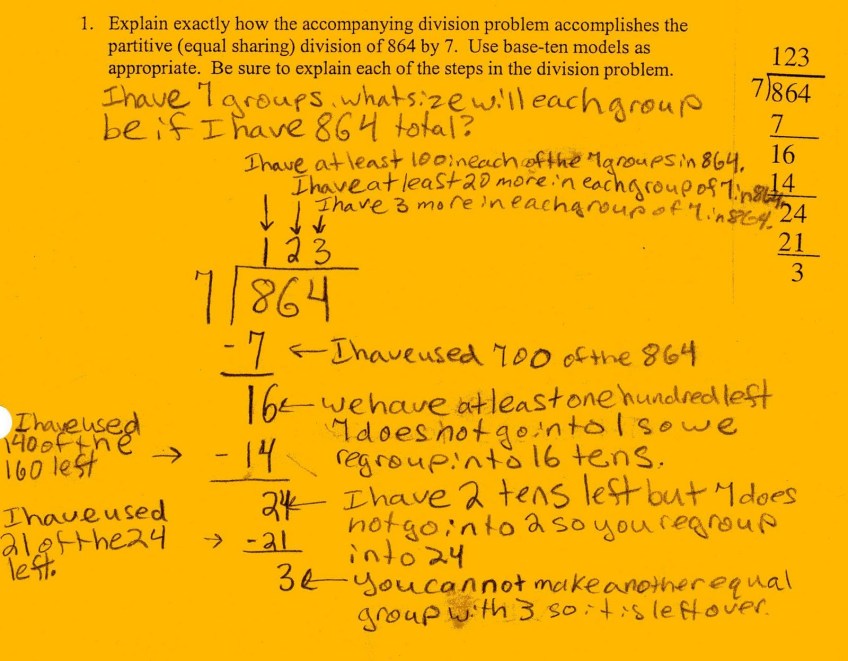 1. Explain exactly how the accompanying division problem accomplishes the
partitive (equal sharing) division of 864 by 7. Use base-ten models as
appropriate. Be sure to explain each of the steps in the division problem.
123
7)864
7
16
14
24
21
3
I have 7 groups. whats size will each group
be if I have 864 total?
I have at least 100 in each of the 7 groups in 864.
I have at least 20 more in each group of 7 in 864.
I have 3 more in each group of 7 in 864.
↓ ↓ ↓
123
7 864
-7 ← I have used 700 of the 864
16 ← we have at least one hundred left
7 does not go into 1 so we
regroup into 16 tens.
I have used
140 of the
160 left → -14
24 ← I have 2 tens left but 7 does
not go into 2 so you regroup
into 24
I have used
21 of the 24
left. → -21
3 ← you cannot make another equal
group with 3 so it is left over.